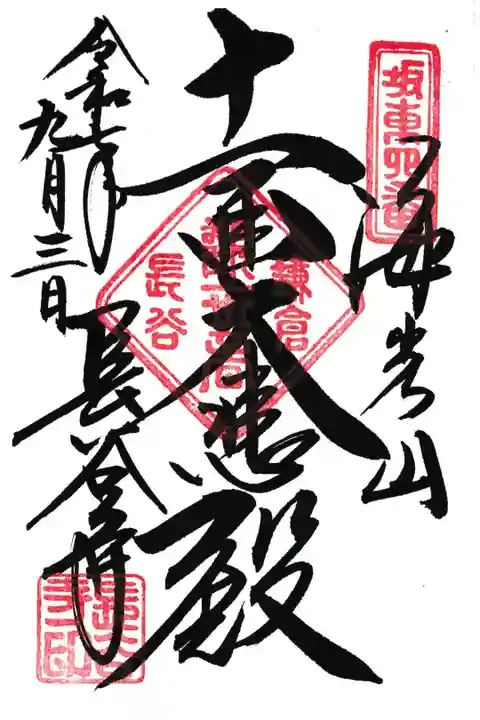 坂東四番
海光山
十一面大悲殿
鎌倉
長谷
令和七年
九月三日
長谷寺
長谷寺印